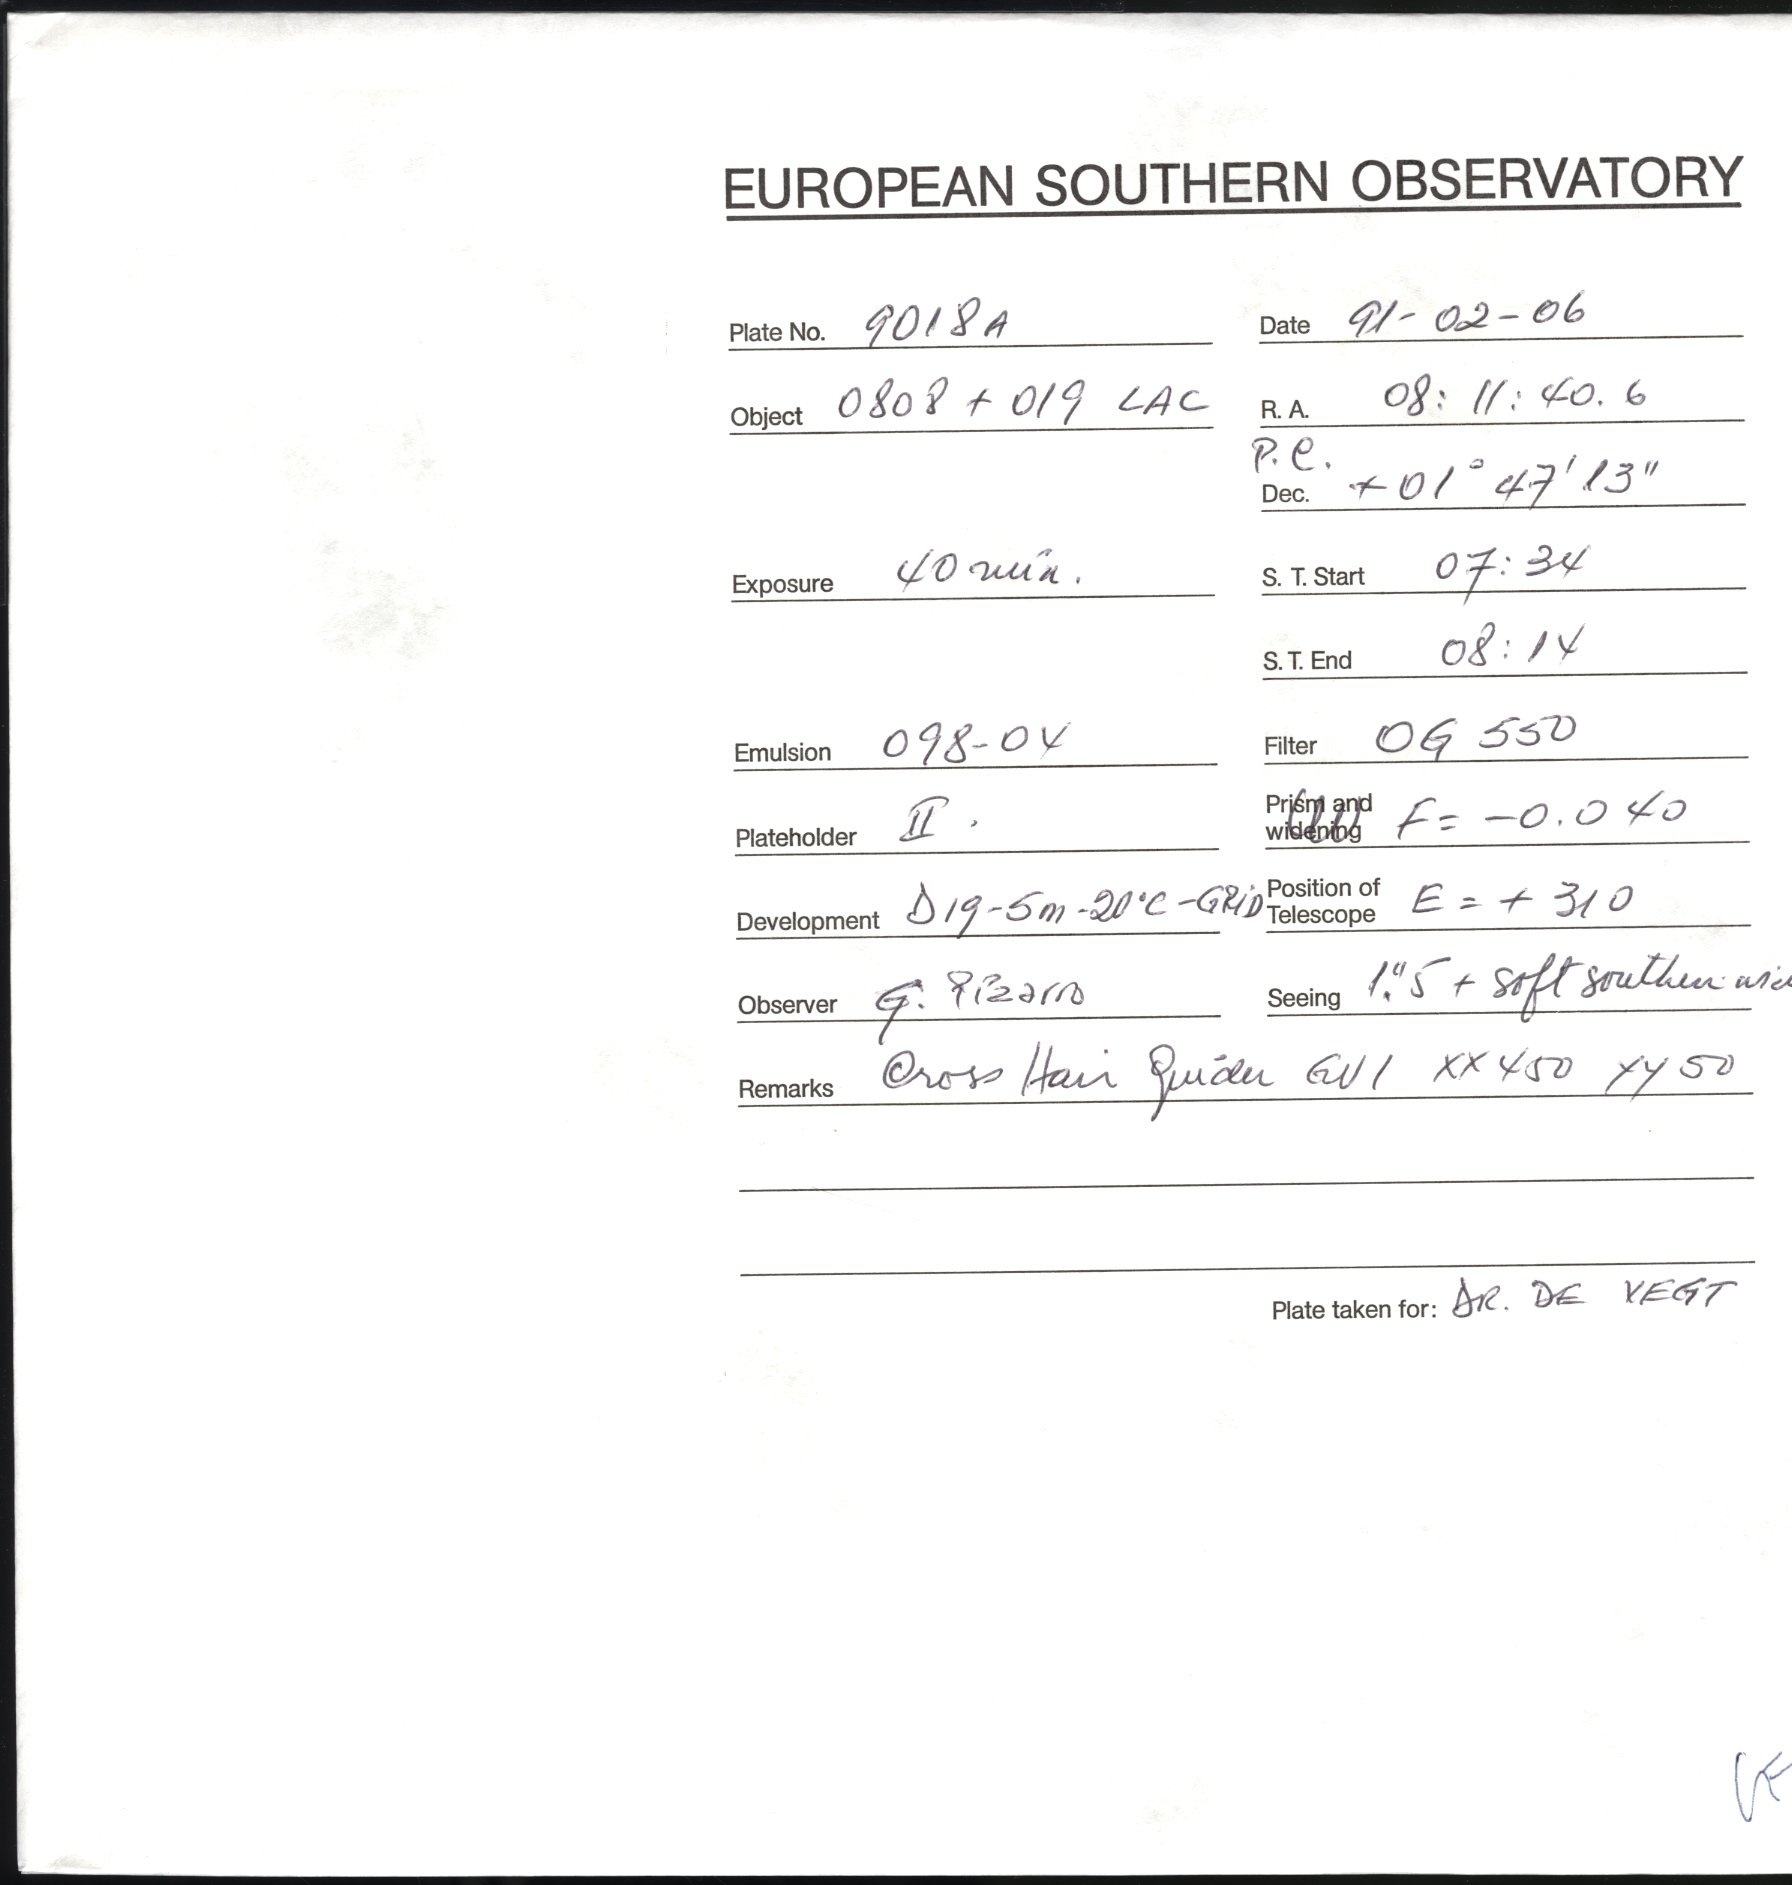 EUROPEAN SOUTHERN OBSERVATORY
Plate No. 9018A Date 91-02-06
Object 0808 + 019 LAC R. A. 08: 11: 40. 6
P. C.
Dec. +01° 47' 13"
Exposure 40 min. S. T. Start 07: 34
S. T. End 08: 14
Emulsion 098-04 Filter OG 550
Plateholder II. Prism and widening F= -0.040
Development D19-5m-20°C-GRiD Position of Telescope E = + 310
Observer G. Pizarro Seeing 1."5 + soft southern
Remarks Cross Hair Guider GV1 XX450 YY50
Plate taken for: DR. DE VEGT